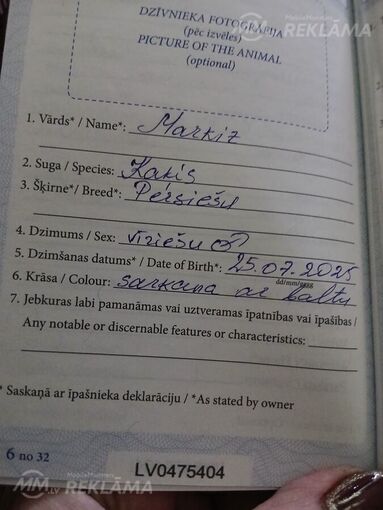 DZĪVNIEKA FOTOGRĀFIJA
(pēc izvēles)
PICTURE OF THE ANIMAL
(optional)
1. Vārds* / Name*: Markiz
2. Suga / Species: Kaķis
3. Šķirne* / Breed*: Persiešu
4. Dzimums / Sex: vīriešu ♂
5. Dzimšanas datums* / Date of Birth*: 25.07.2025
dd/mm/gggg
6. Krāsa / Colour: sarkana ar baltu
7. Jebkuras labi pamanāmas vai uztveramas īpatnības vai īpašības /
Any notable or discernable features or characteristics:
* Saskaņā ar īpašnieka deklarāciju / *As stated by owner
6 no 32
LV0475404
MM.LV REKLĀMA